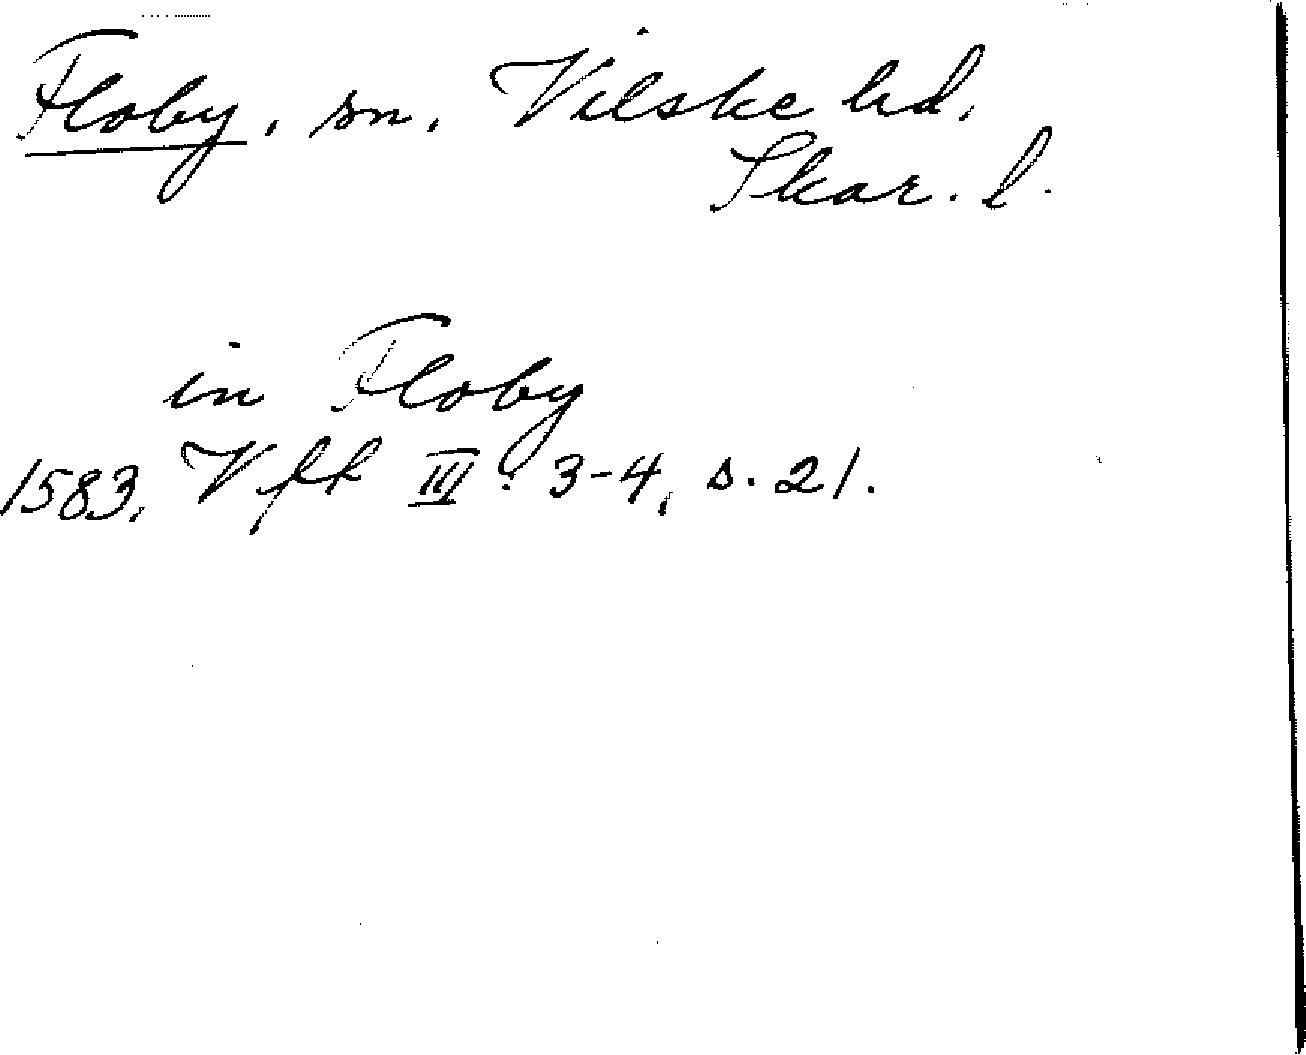 Floby, sn. Vilske hd.
Skar. l.
in Floby
1583, Vfft III: 3-4, s. 21.